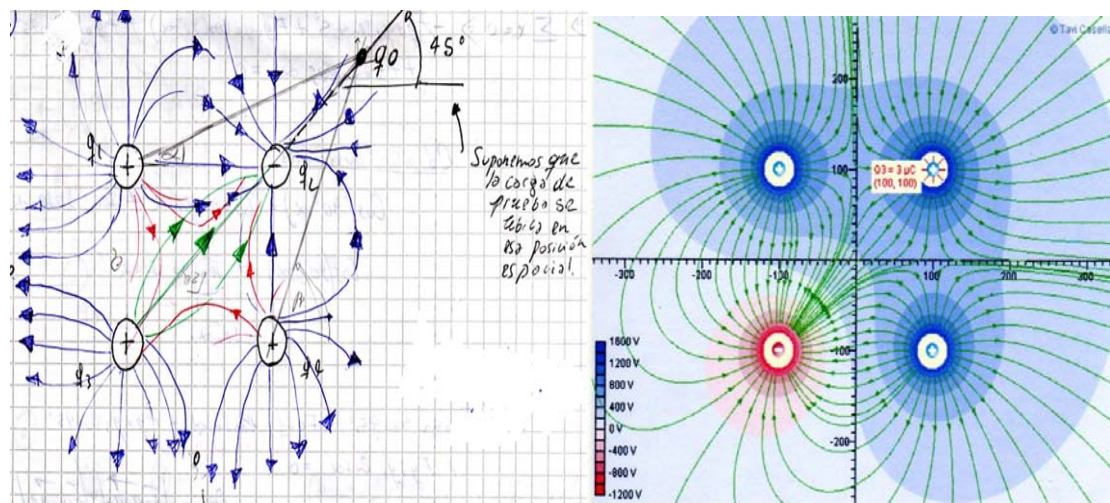 q0
45°
q1
+
α1
-
q2
Suponemos que
la carga de
prueba se
ubica en
esa posición
espacial.
+
q3
+
β
© Tavi Casellas
200
100
Q3 = 3 μC
(100, 100)
-300
-200
-100
100
200
300
-100
-200
1600 V
1200 V
800 V
400 V
0 V
-400 V
-800 V
-1200 V